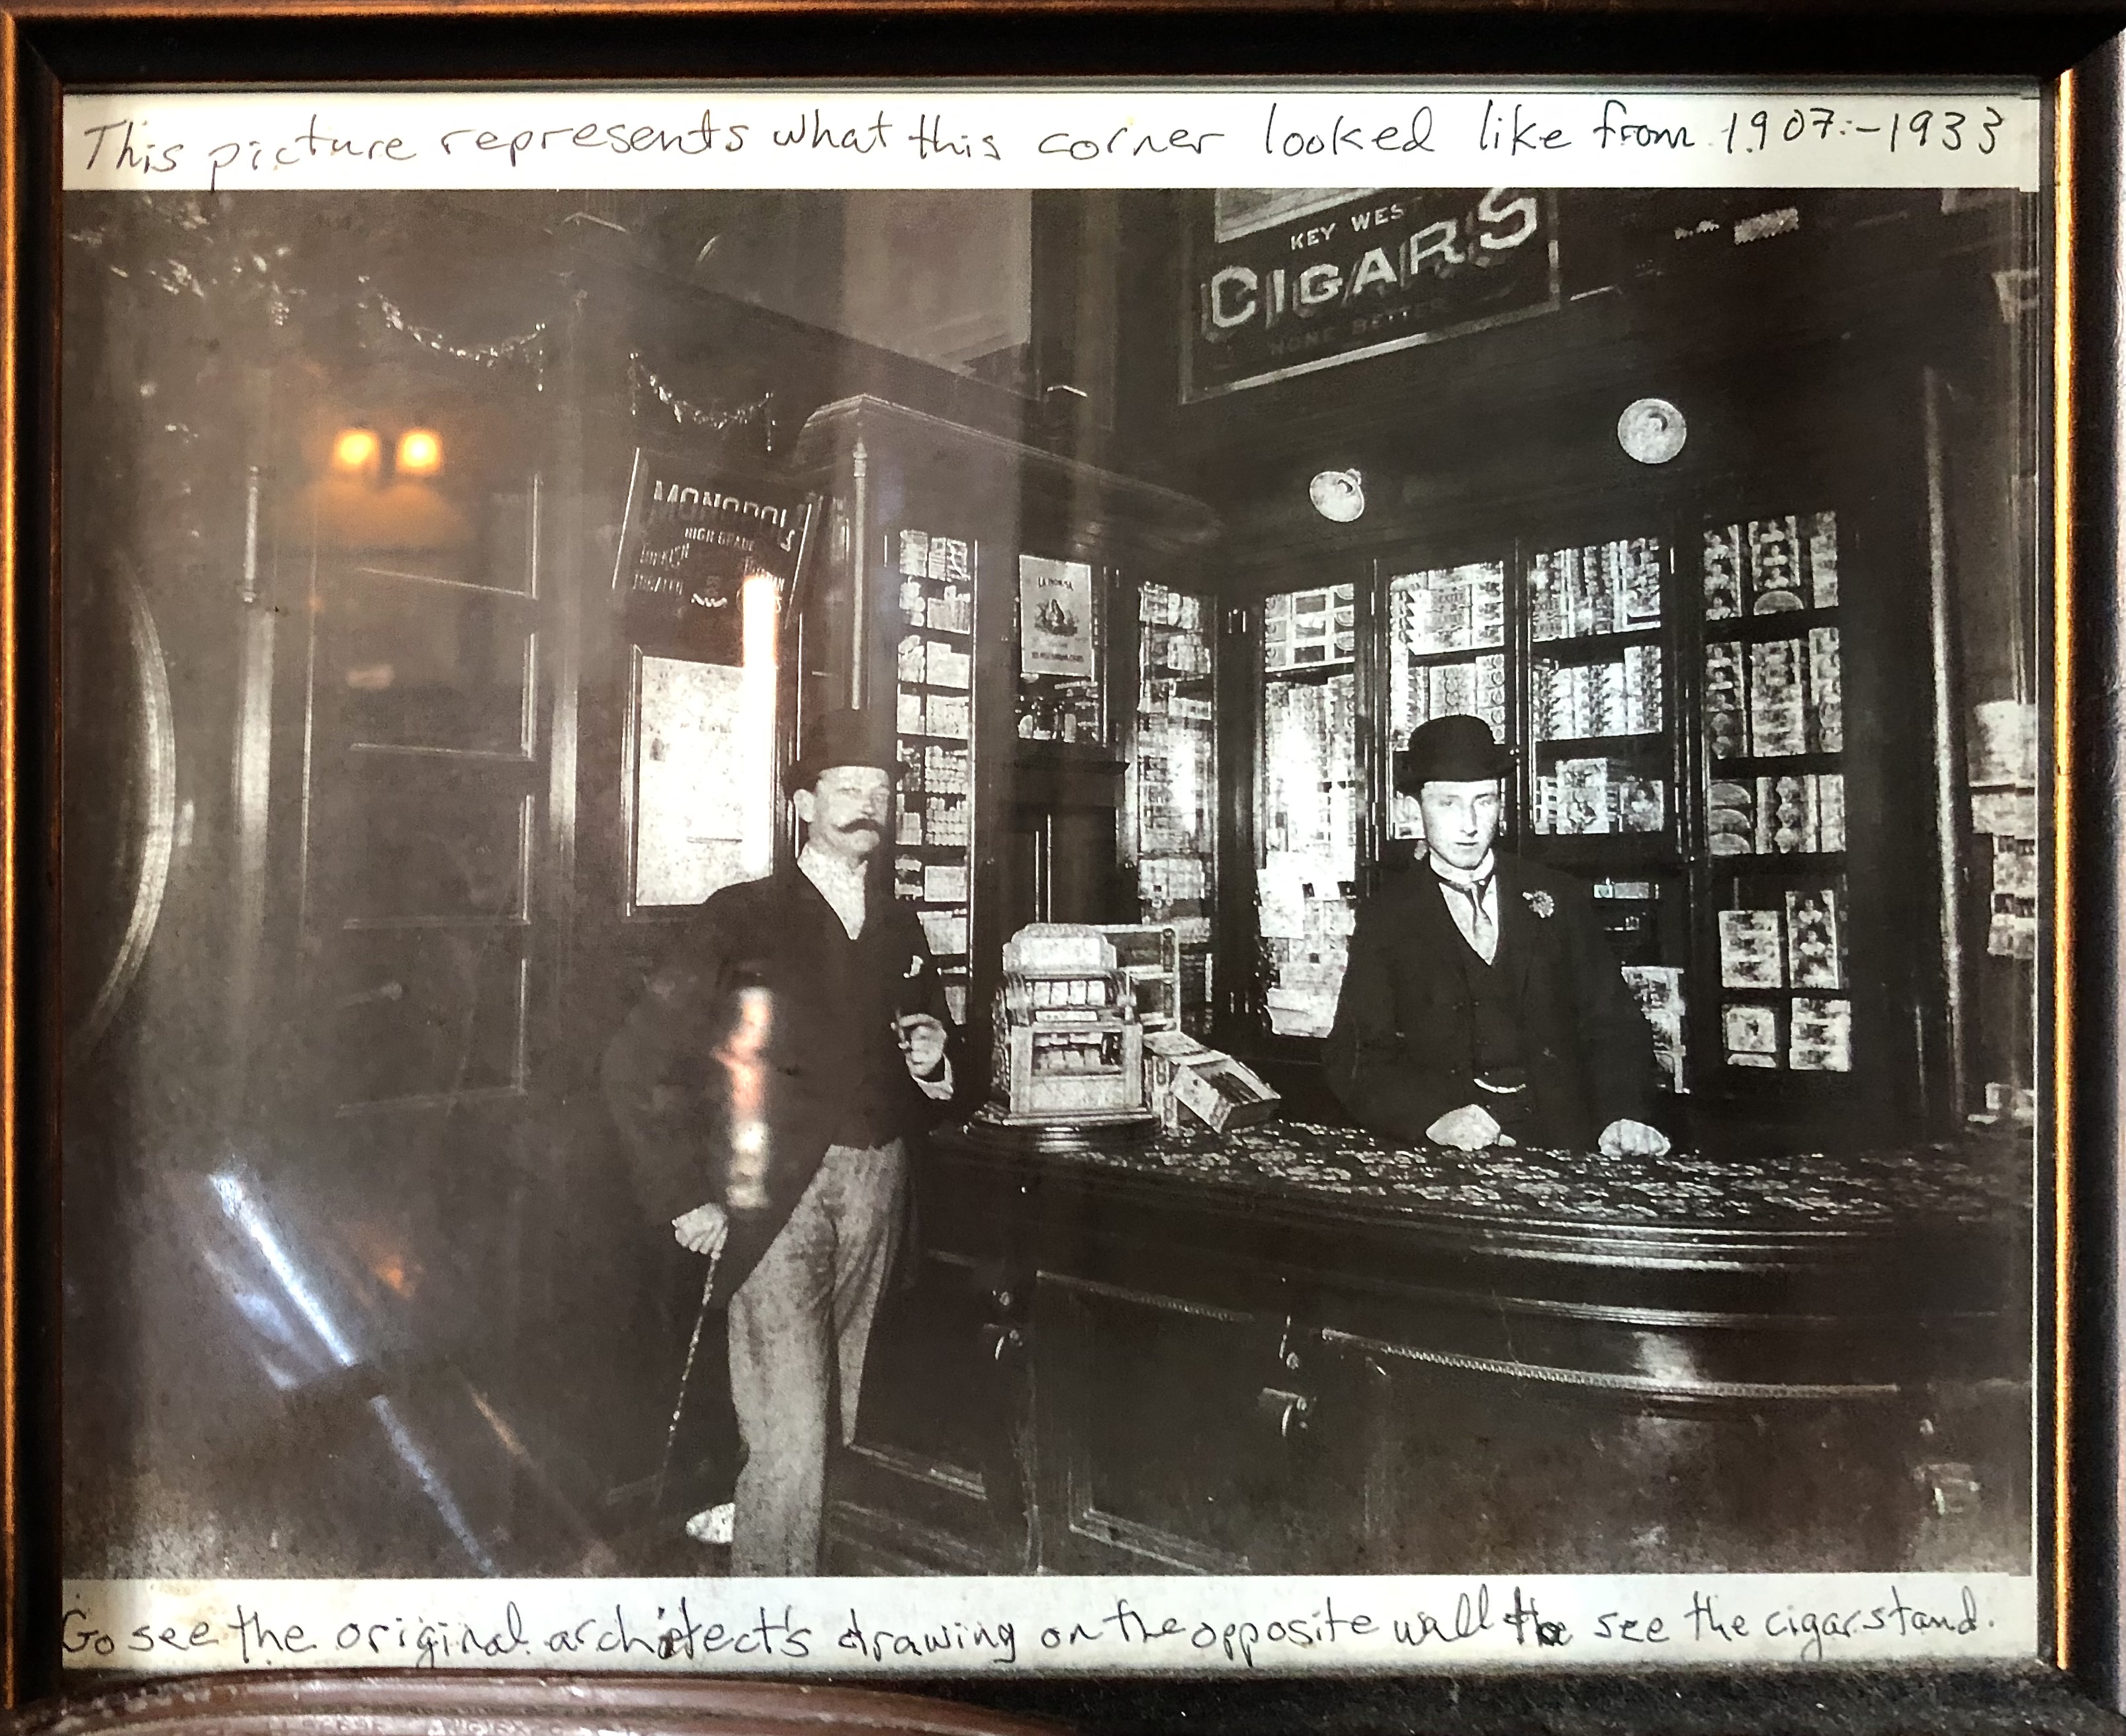 This picture represents what this corner looked like from 1907-1933
KEY WEST
CIGARS
NONE BETTER
MONOPOL
HIGH GRADE
Go see the original architect's drawing on the opposite wall to see the cigar stand.